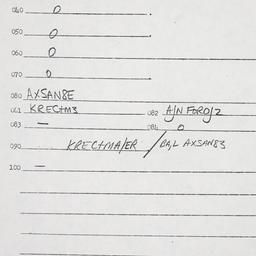 040 0 .
050 0 .
060 0
070 0 .
080 AXSAN8E
081 KRECTM3 082 A/N FORD/2
083 — 084 0
090 KRECTMA/ER / BA,L AXSAN83
100 —